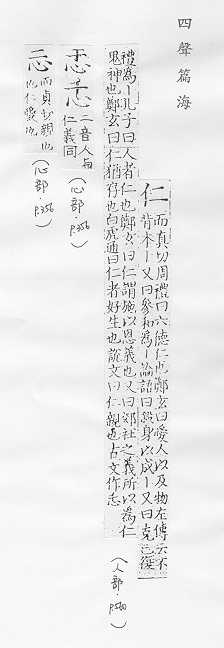 四聲篇海
仁 而真切周禮曰六德仁也鄭玄曰愛人以及物左傳云不
背本丨又曰參和為丨論語曰殺身以成丨又曰克己復
禮為丨孔子曰人者仁也鄭玄曰仁謂施以恩義也又曰郊社之義所以為仁
鬼神也鄭玄曰仁猶存也白虎通曰仁者好生也說文曰仁親也古文作
(人部.p560)
二音人与
仁義同
(心部.p356)
忈 而真切親也
仁愛也
(心部.p356)